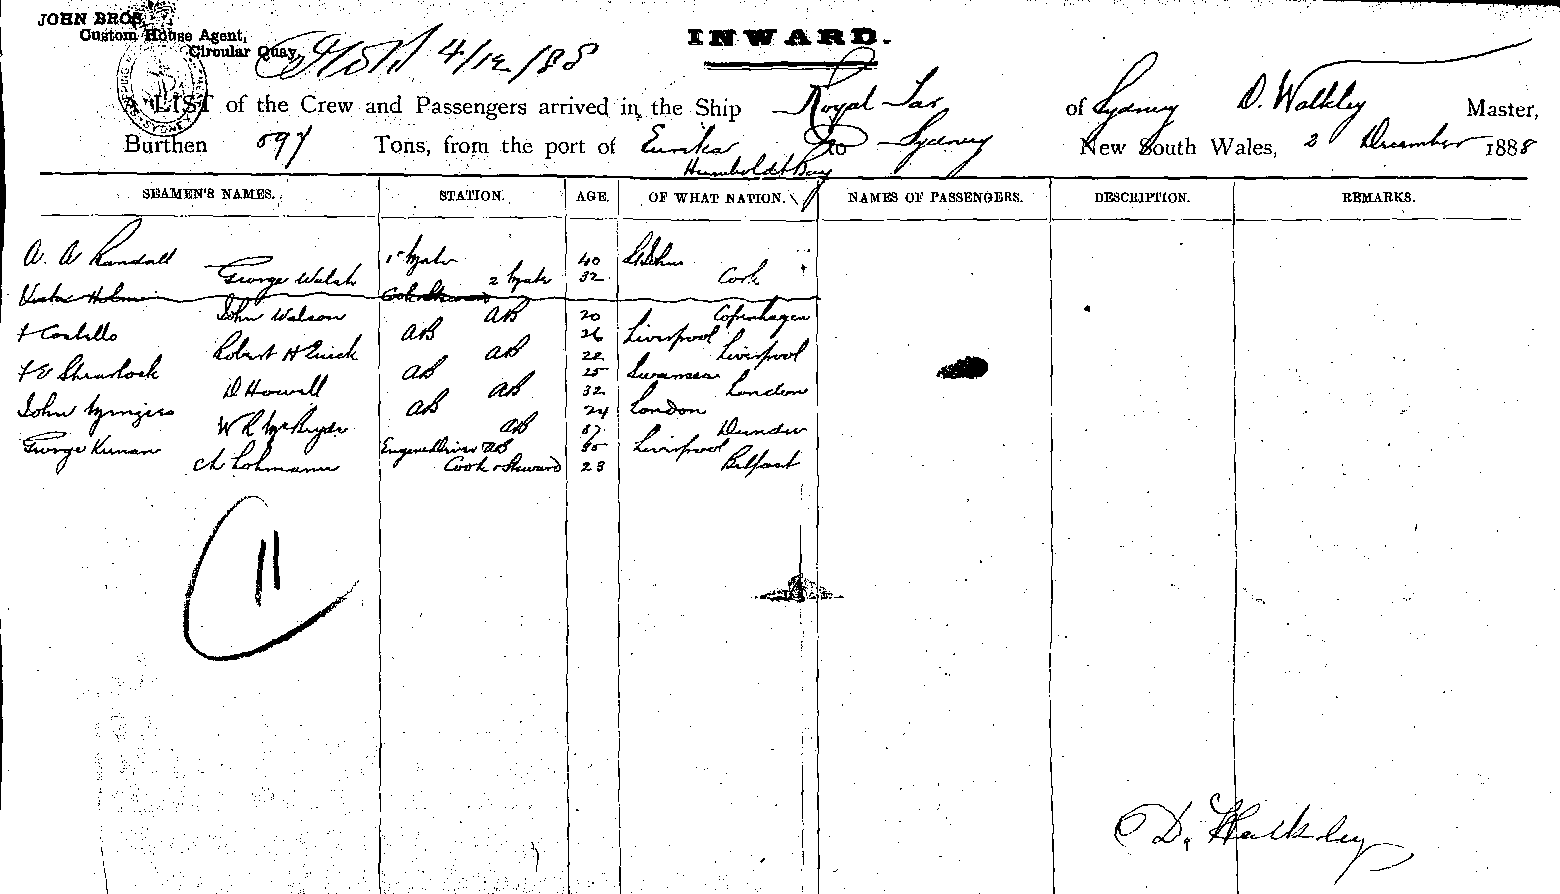 JOHN BROS.
Custom House Agent,
Circular Quay.
4/12/88
INWARD.
A LIST of the Crew and Passengers arrived in the Ship Royal Tar of Sydney D. Walkley Master,
Burthen 597 Tons, from the port of Eureka Humboldt Bay to Sydney New South Wales, 2 December 1888
SEAMEN'S NAMES. STATION. AGE. OF WHAT NATION. NAMES OF PASSENGERS. DESCRIPTION. REMARKS.
A. A Randall 1st Mate 40 St Johns
George Walsh 2 Mate 32 Cork
John Watson AB 20 Copenhagen
Costello AB 26 Liverpool
Robert H AB 22 Liverpool
Shearlock AB 25 Swansea
D Howell AB 32 London
John AB 24 London
W R AB 37 Dundee
George Kernan AB Liverpool
Ch Lohmann Cook & Steward 23 Belfast
11
D. Walkley